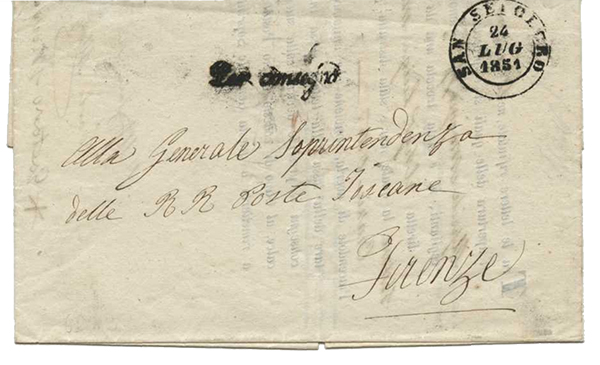 Per consegna
SAN SEPOLCRO
24
LUG
1851
Alla Generale Soprintendenza
delle R R Poste Toscane
Firenze